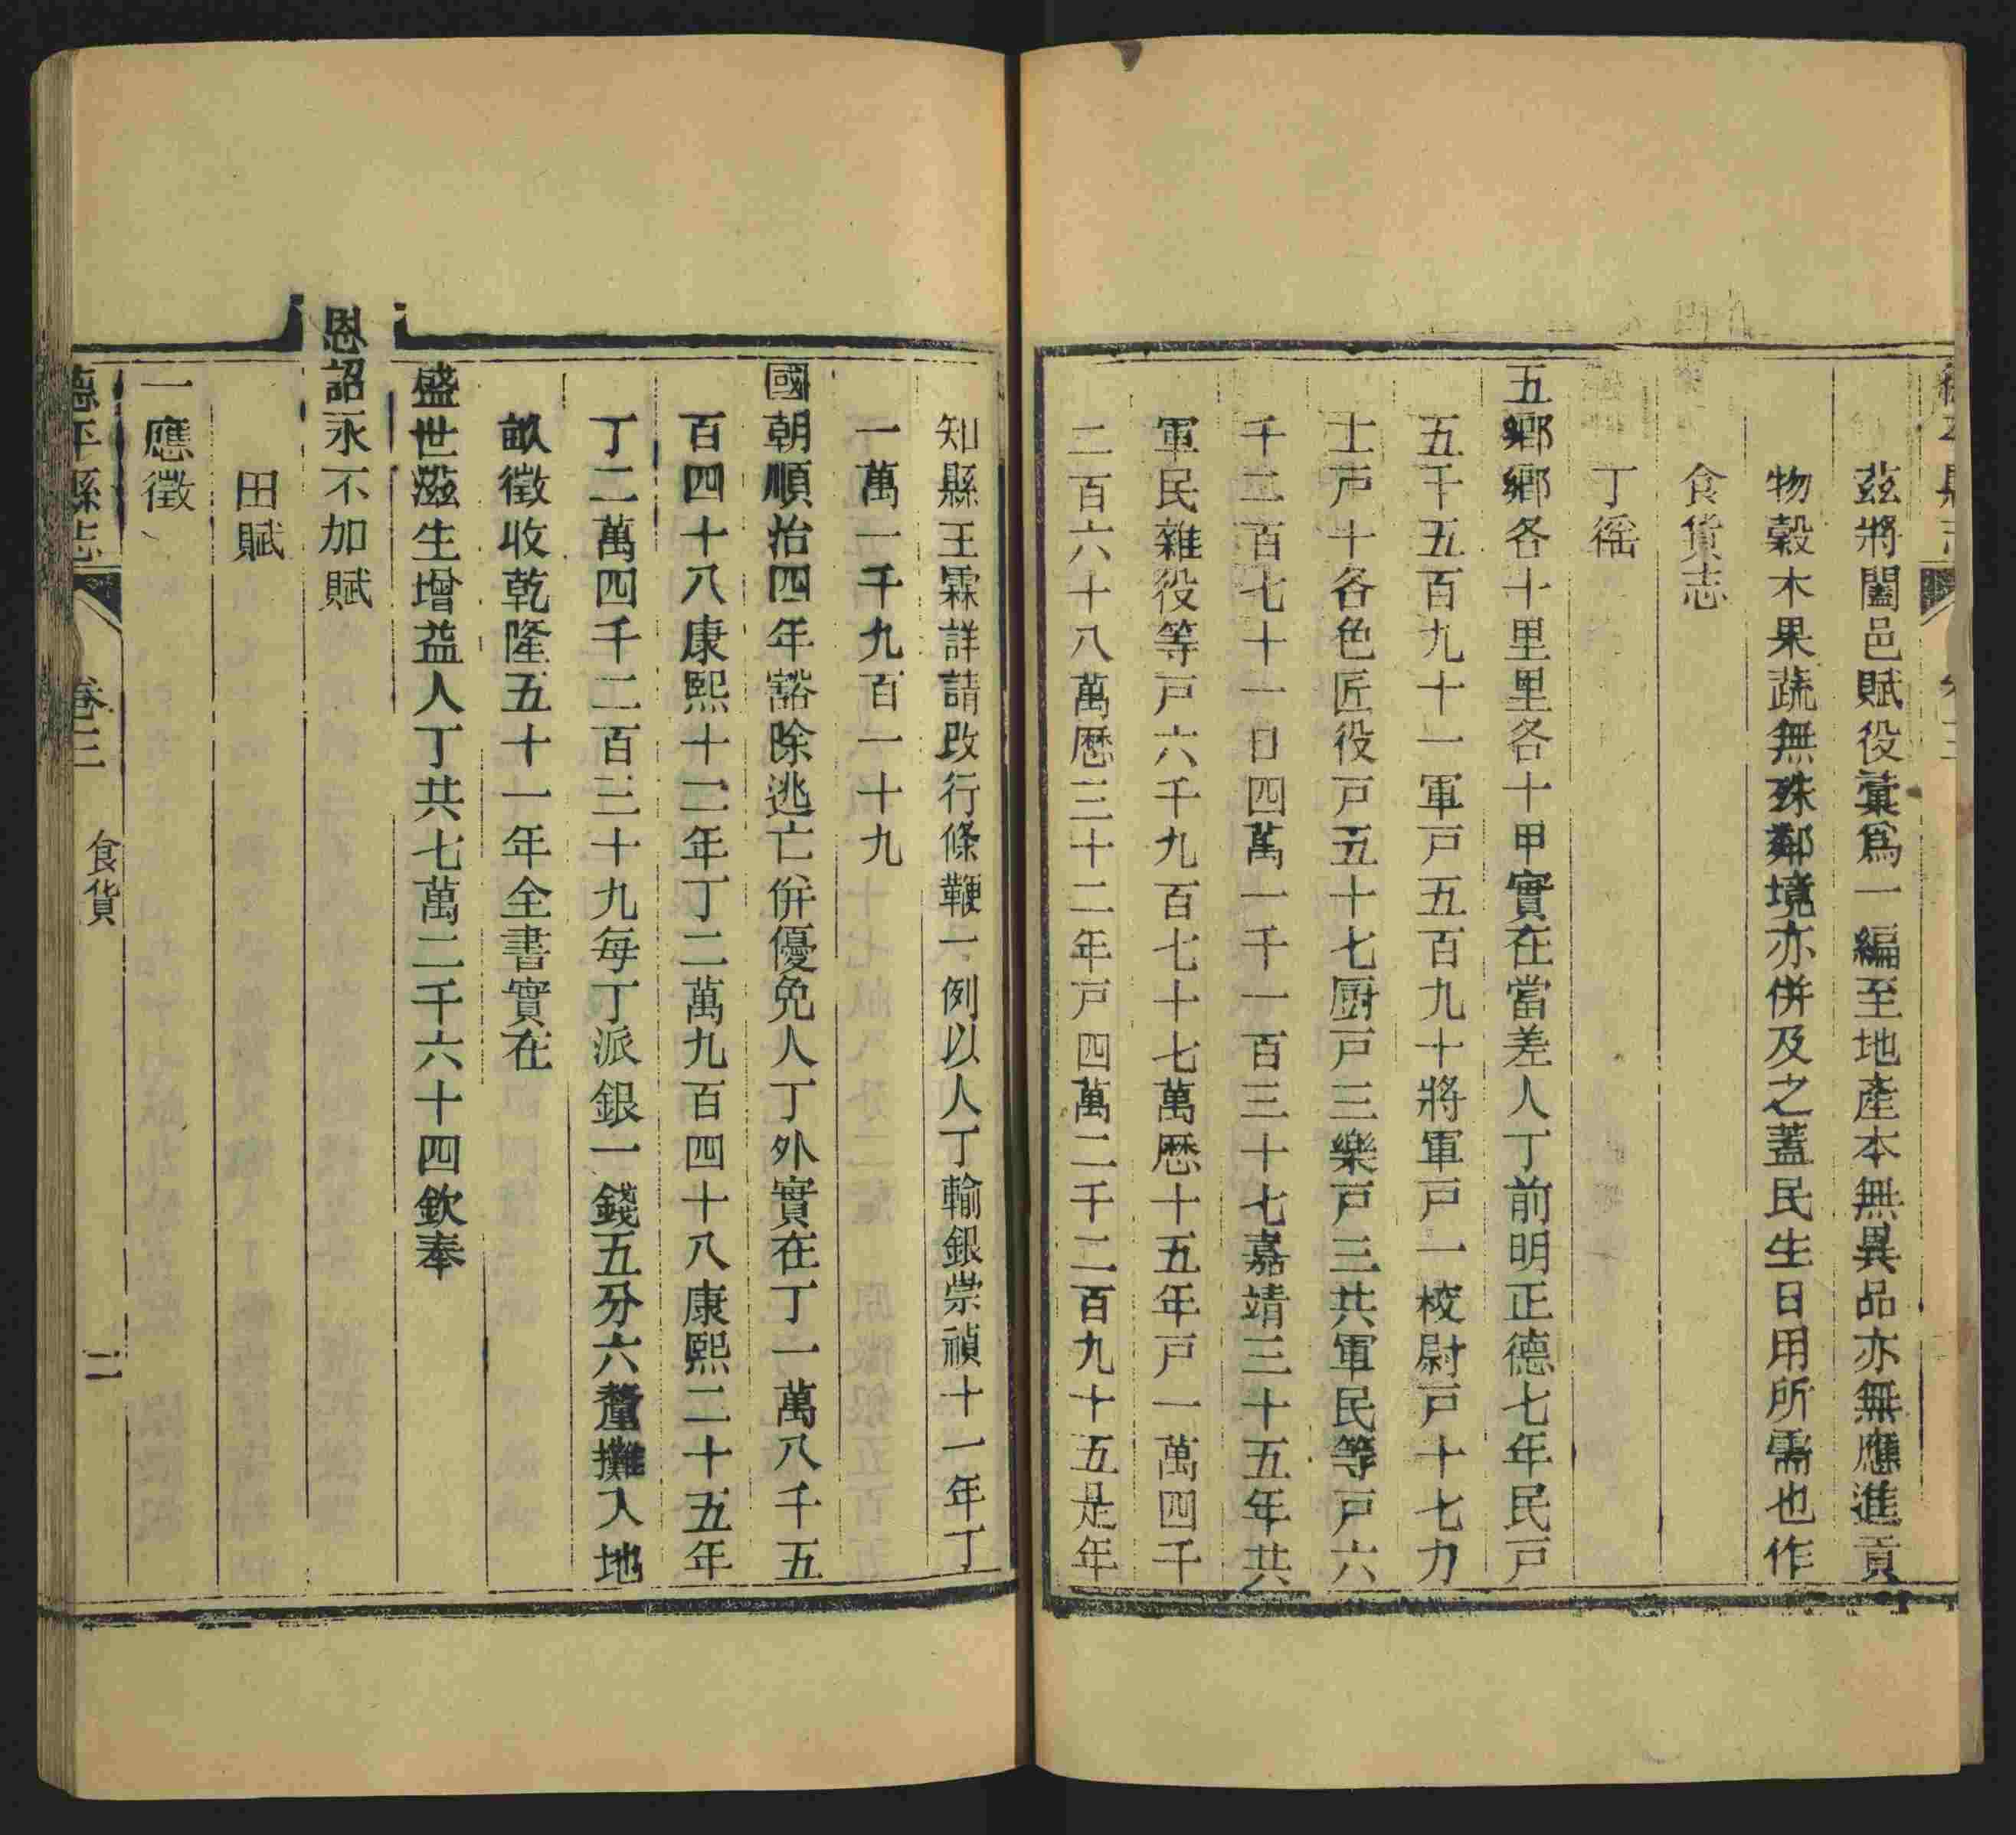 茲將闔邑賦役彙爲一編至地產本無異品亦無應進貢
物穀木果蔬無殊鄰境亦併及之蓋民生日用所需也作
食貨志
丁徭
五鄉鄉各十里里各十甲實在當差人丁前明正德七年民戸
五千五百九十一軍戸五百九十將軍戸一校尉戸十七力
士戸十各色匠役戸五十七厨戸三樂戸三共軍民等戸六
千二百七十一口四萬一千一百三十七嘉靖三十五年共
軍民雜役等戸六千九百七十七萬曆十五年戸一萬四千
二百六十八萬曆三十二年戸四萬二千二百九十五是年
知縣王霖詳請改行條鞭一例以人丁輸銀崇禎十一年丁
一萬一千九百一十九
國朝順治四年豁除逃亡併優免人丁外實在丁一萬八千五
百四十八康熙十二年丁二萬九百四十八康熙二十五年
丁二萬四千二百三十九每丁派銀一錢五分六釐攤入地
畝徵收乾隆五十一年全書實在
盛世滋生增益人丁共七萬二千六十四欽奉
恩詔永不加賦
田賦
一應徵
德平縣志 卷三 食貨 二